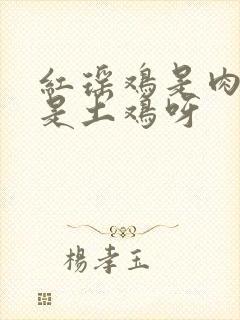 红瑶鸡是肉
是土鸡呀
楊孝玉